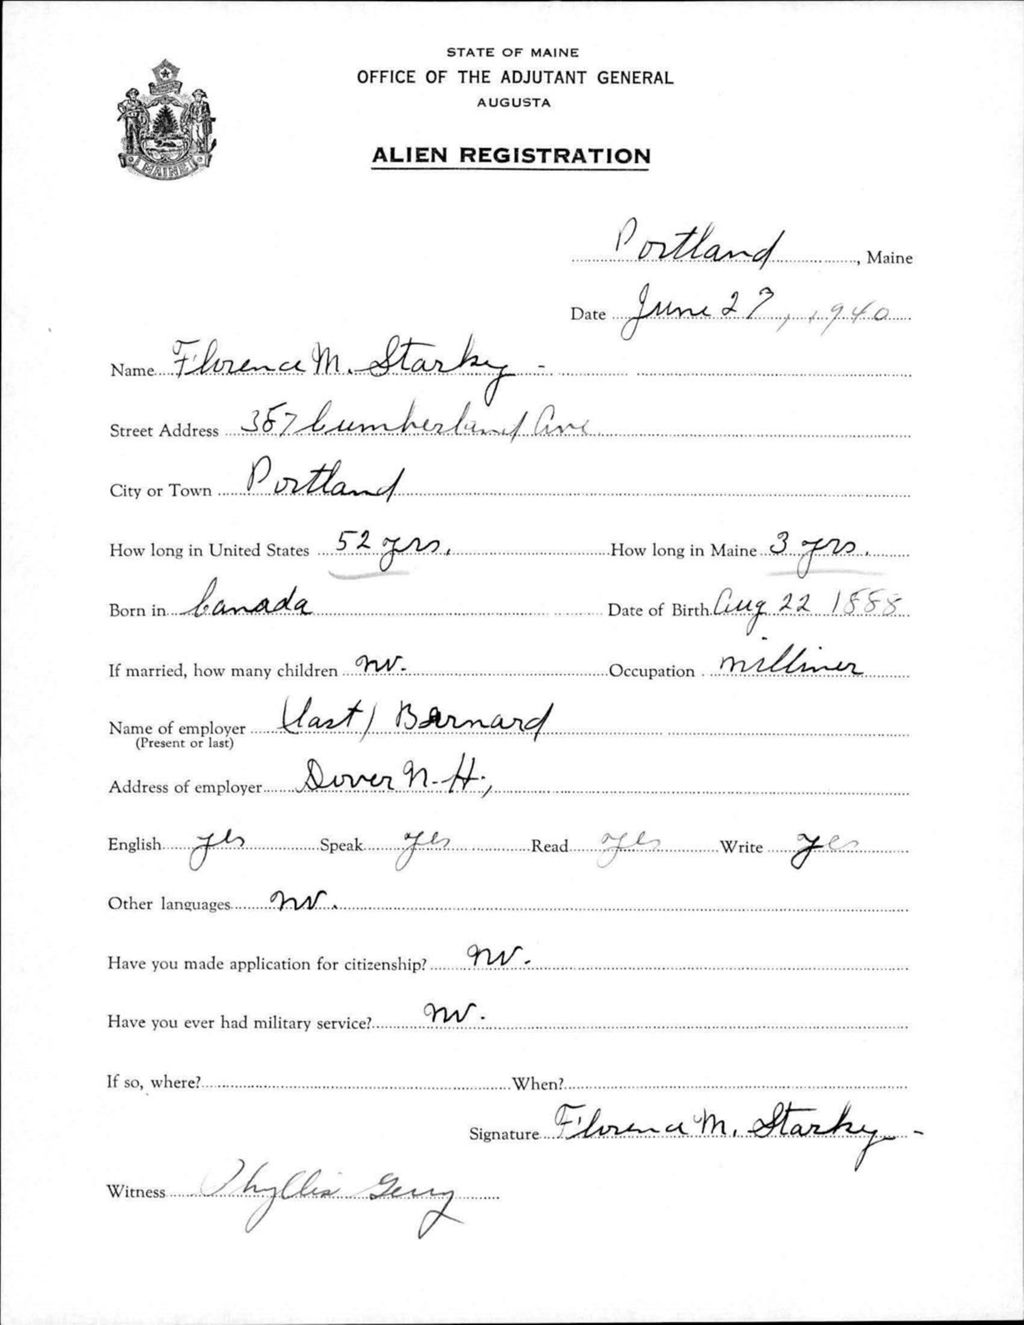 STATE OF MAINE
OFFICE OF THE ADJUTANT GENERAL
AUGUSTA
ALIEN REGISTRATION
MAINE
Portland, Maine
Date June 27, 1940
Name Florence M. Starky -
Street Address 357 Cumberland Ave
City or Town Portland
How long in United States 52 yrs. How long in Maine 3 yrs.
Born in Canada Date of Birth Aug 22 1888
If married, how many children no. Occupation milliner
Name of employer (last) Barnard
(Present or last)
Address of employer Dover N-H;
English yes Speak yes Read yes Write yes
Other languages no.
Have you made application for citizenship? no.
Have you ever had military service? no.
If so, where? When?
Signature Florence M. Starky -
Witness Phyllis Gerry